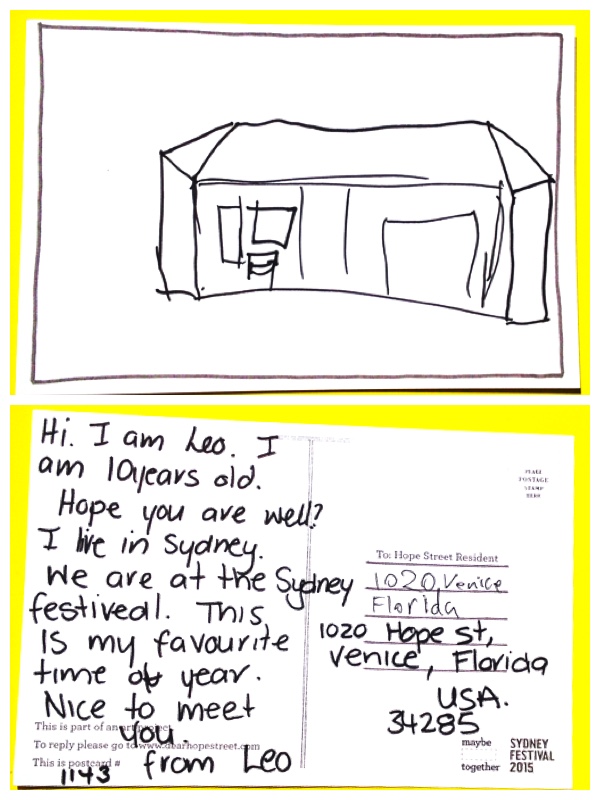 Hi. I am Leo. I
am 10years old.
Hope you are well?
I live in Sydney.
We are at the Sydney
festiveal. This
Is my favourite
time of year.
Nice to meet
you.
from Leo
This is part of an art project.
To reply please go to www.dearhopestreet.com
This is postcard #
1143
PLACE
POSTAGE
STAMP
HERE
To: Hope Street Resident
1020, Venice
Florida
1020 Hope st,
Venice, Florida
USA.
34285
maybe
together
SYDNEY
FESTIVAL
2015